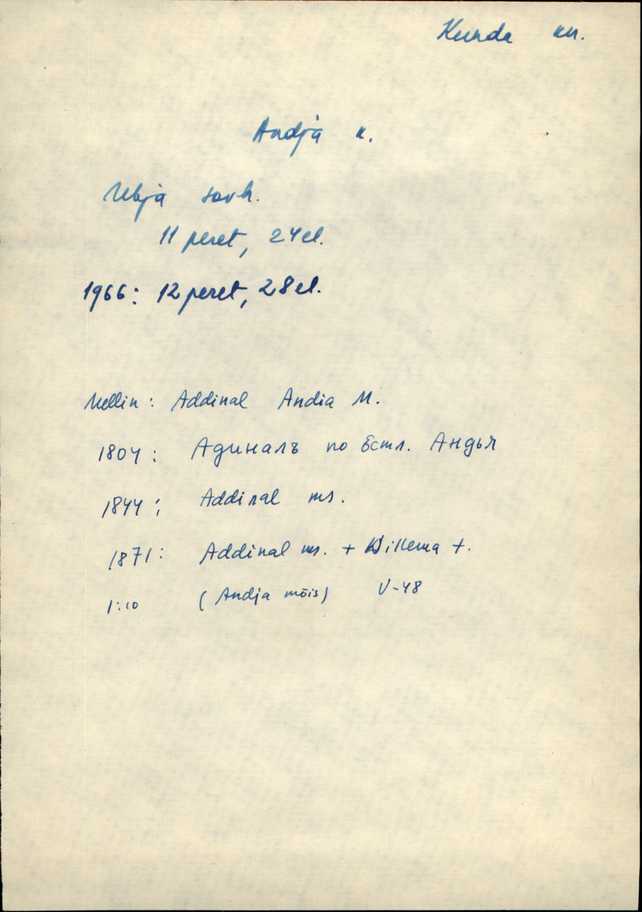 Kunda kn.
Andja k.
Ubja sovh.
11 peret, 24 el.
1966: 12 peret, 28 el.
Mellin: Addinal Andia M.
1804: Адиналъ по Естл. Андья
1844: Addinal ms.
1871: Addinal ms. + Willema +.
1:10 (Andja mõis) V-48